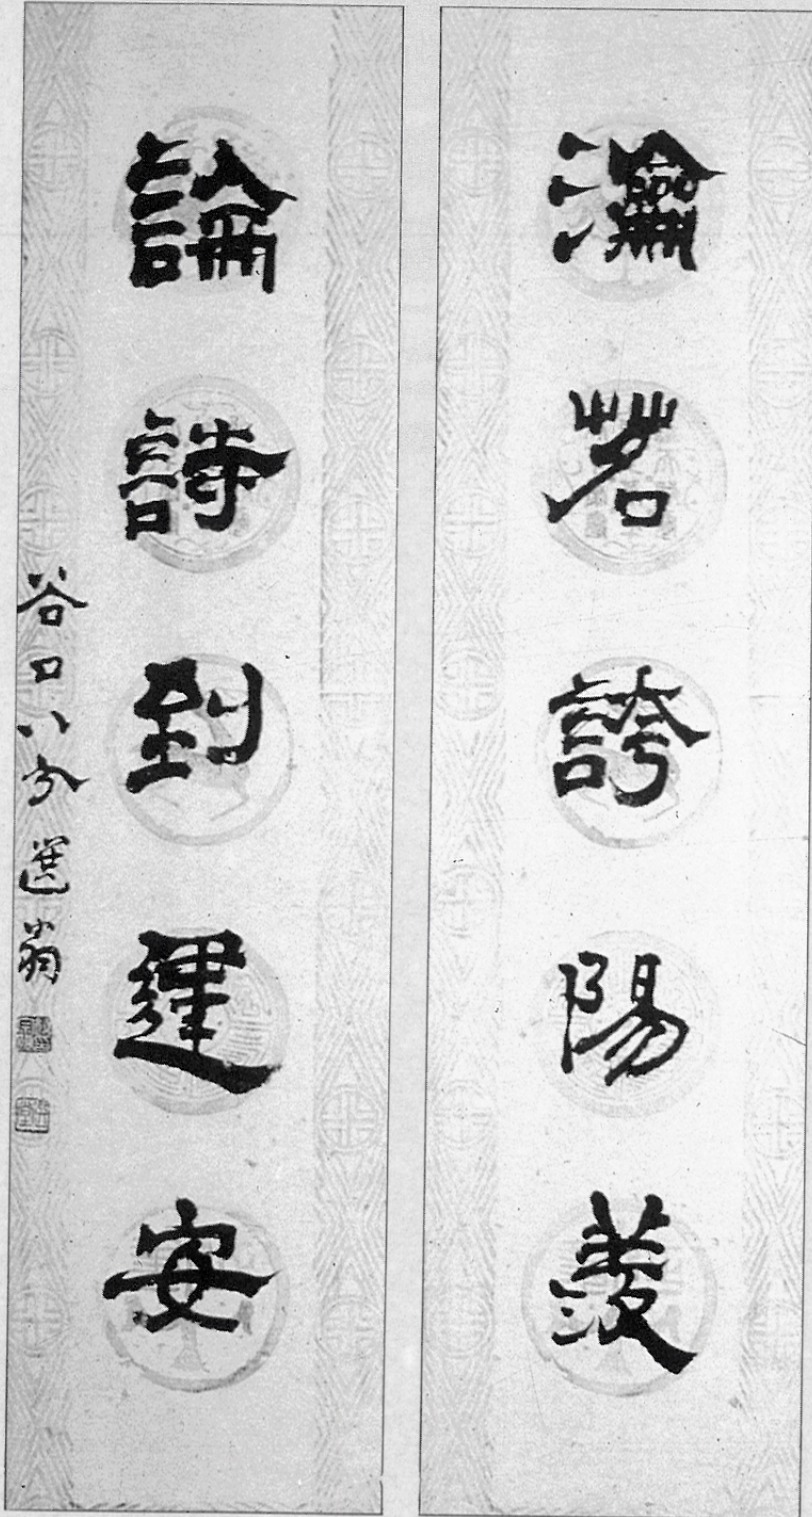 瀹茗誇陽羨
論詩到建安
谷口八分選翁